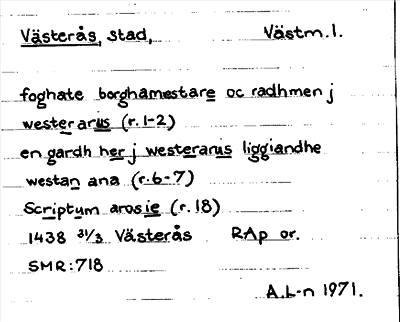 Västerås, stad, Västm. l.
foghate borghamestare oc radhmen j
westerarus (r. 1-2)
en gardh her j westerarus liggiandhe
westan ana (r. 6-7)
Scriptum arosie (r. 18)
1438 31/3 Västerås RAp or.
SMR: 718
A. L-n 1971.